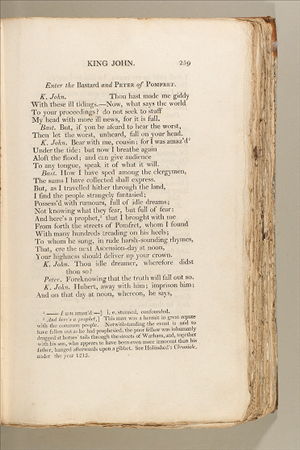 KING JOHN. 259
Enter the Bastard and PETER of POMFRET.
K. John. Thou hast made me giddy
With these ill tidings.—Now, what says the world
To your proceedings? do not seek to stuff
My head with more ill news, for it is full.
Bast. But, if you be afeard to hear the worst,
Then let the worst, unheard, fall on your head.
K. John. Bear with me, cousin; for I was amaz'd¹
Under the tide: but now I breathe again
Aloft the flood; and can give audience
To any tongue, speak it of what it will.
Bast. How I have sped among the clergymen,
The sums I have collected shall express.
But, as I travelled hither through the land,
I find the people strangely fantasied;
Possess'd with rumours, full of idle dreams;
Not knowing what they fear, but full of fear:
And here's a prophet,² that I brought with me
From forth the streets of Pomfret, whom I found
With many hundreds treading on his heels;
To whom he sung, in rude harsh-sounding rhymes,
That, ere the next Ascension-day at noon,
Your highness should deliver up your crown.
K. John. Thou idle dreamer, wherefore didst
thou so?
Peter. Foreknowing that the truth will fall out so.
K. John. Hubert, away with him; imprison him;
And on that day at noon, whereon, he says,
¹ —— I was amaz'd—] i. e. stunned, confounded.
² And here's a prophet,] This man was a hermit in great repute
with the common people. Notwithstanding the event is said to
have fallen out as he had prophesied, the poor fellow was inhumanly
dragged at horses' tails through the streets of Warham, and, together
with his son, who appears to have been even more innocent than his
father, hanged afterwards upon a gibbet. See Holinshed's Chronicle,
under the year 1213.